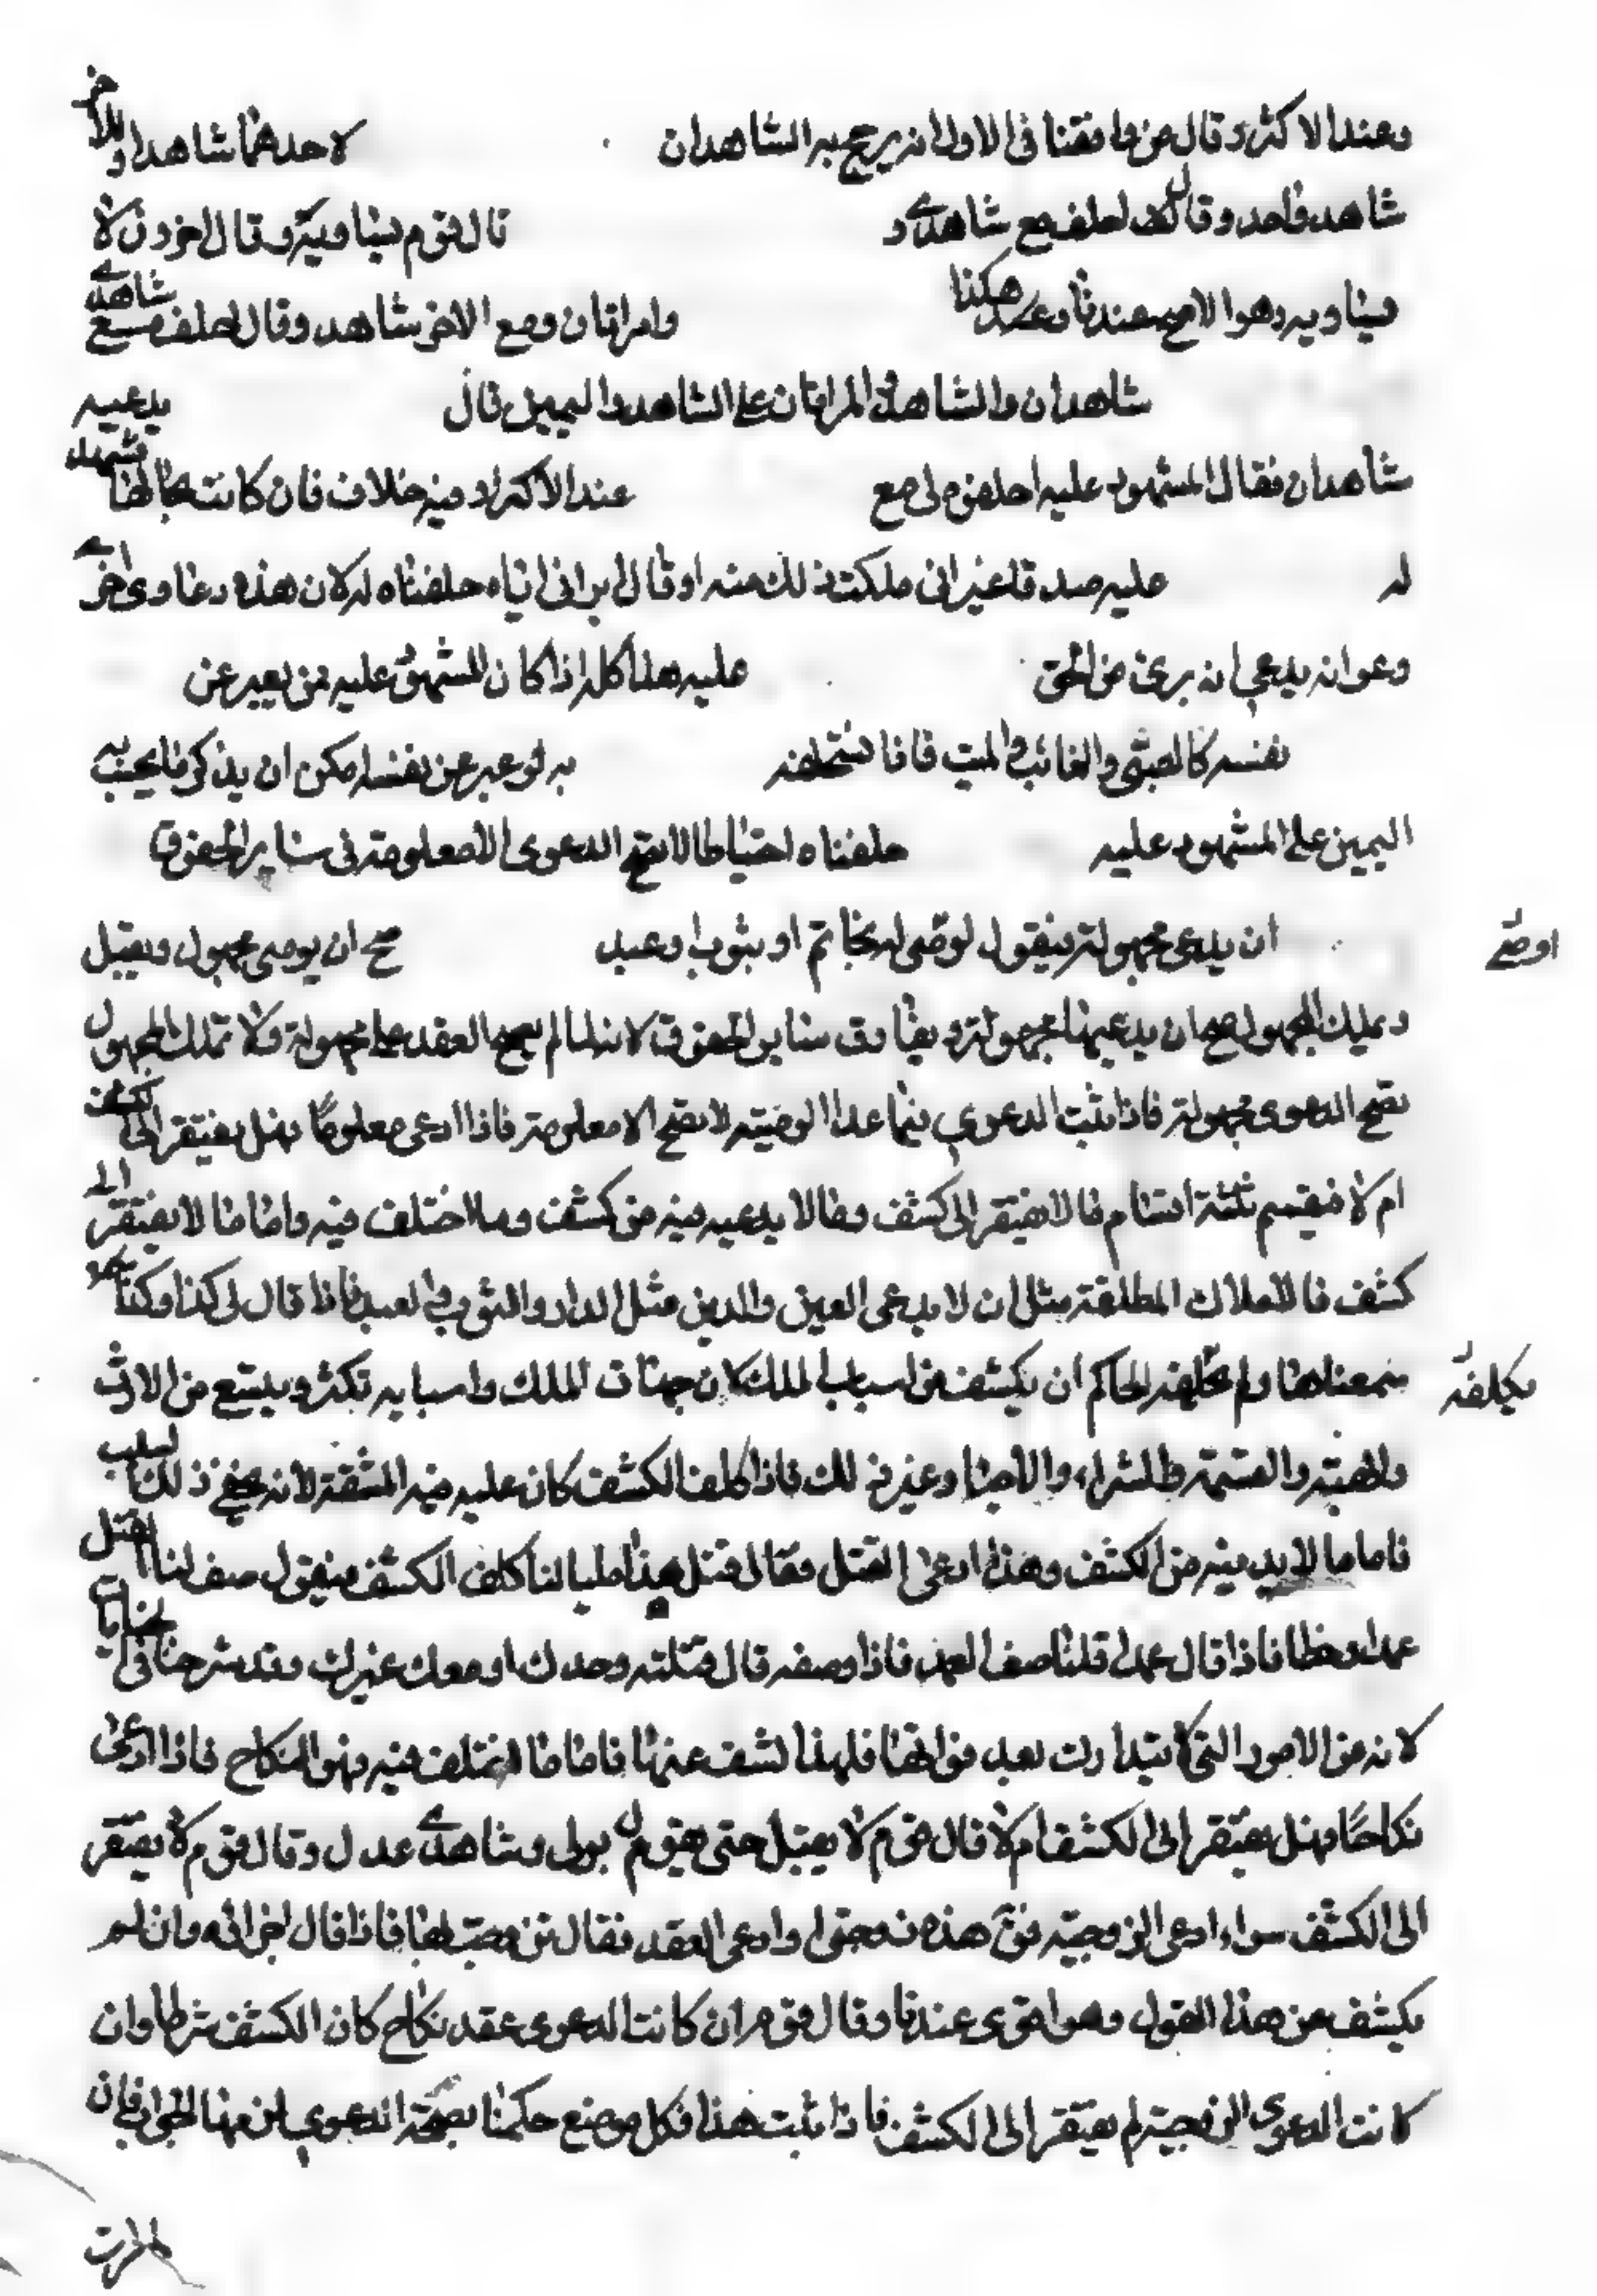 وعند الاكثر وقال من وافقنا فى الاول انه يرجح به الشاهدان لاحدهما شاهدان وللآخر
شاهد واحد وقال احلف مع شاهدى و قال قوم يتساويان وقال اخرون لا
يتساويان وهو الاصح عندنا وهكذا وامراتان ومع الاخر شاهد وقال احلف مع شاهدى
شاهدان والشاهد والمراتان على الشاهد واليمين قال يدعيه
شاهدان فقال المشهود عليه احلفوه لى مع عند الاكثر وفيه خلاف فان كانت بحالها فشهد
له عليه صدقا غير انى ملكت ذلك منه او قال ابرانى اياه حلفناه له لان هذه دعاوى اخرى
وهو انه يدعى انه برى من الحق عليه هذا كله اذا كان المشهود عليه ممن يعبر عن
نفسه كالصبى والغائب والميت فانا نستحلفه به لو عبر عن نفسه امكن ان يذكر ما يجب به
اليمين على المشهود عليه حلفناه احتياطا لا تصح الدعوى الا معلومة فى ساير الحقوق
ان يدعى مجهولة فيقول اوصى له بخاتم او بثوب او عبد صح ان يوصى بمجهول ويقبل
اوصى
ويملك المجهول صح ان يدعيها مجهولة ويفارق ساير الحقوق لانه لما لم يصح العقد على مجهولة ولا تملك المجهول
تصح الدعوى مجهولة فاذا ثبت الدعوى فيما عدا الوصية لا تصح الا معلومة فاذا ادعى معلوما فهل يفتقر الى الكشف
ام لا فيقسم ثلثة اقسام ما لا يفتقر الى كشف وما لا بد فيه من كشف وما اختلف فيه واما ما لا يفتقر الى
كشف فالاملاك المطلقة مثل ان يدعى العين والدين مثل الدار والثوب والعبد فاذا قال لى كذا وكذا
سمعناها ولم يكلفه الحاكم ان يكشف عن اسباب الملك لان جهات الملك واسبابه تكثر ويتسع من الارث
يكلفه
والهبة والغنيمة والشراء والاحيا وغير ذلك فاذا كلف الكشف كان عليه فيه المشقة لانه يخفى ذلك السبب
فاما ما لا بد فيه من الكشف وهذا ادعى القتل فقال قتل هذا وليا لنا كلف الكشف فيقول صف لنا القتل
عمدا او خطا فاذا قال عمدا قلنا صف العمد فاذا وصفه قال قتلته وحدك او معك غيرك وقد شرحناه فى الجنايات
لانه من الامور التى لا يتدارك بعد فواتها فلهذا كشف عنها فاما ما اختلف فيه فهو النكاح فاذا ادعى
نكاحا فهل يفتقر الى الكشف ام لا قال قوم لا يقبل حتى يقول بولى وشاهدى عدل وقال قوم لا يفتقر
الى الكشف سواء ادعى الزوجية فقال هذه زوجتى او ادعى العقد فقال تزوجت بها فاذا قال اجزائه وان لم
يكشف عن هذا القول وهو اقوى عندنا وقال قوم ان كانت الدعوى عقد نكاح كان الكشف شرطا وان
كانت الدعوى الزوجية لم يفتقر الى الكشف فاذا ثبت هذا فكل موضع حكمنا بصحة الدعوى لزمها الجواب فان